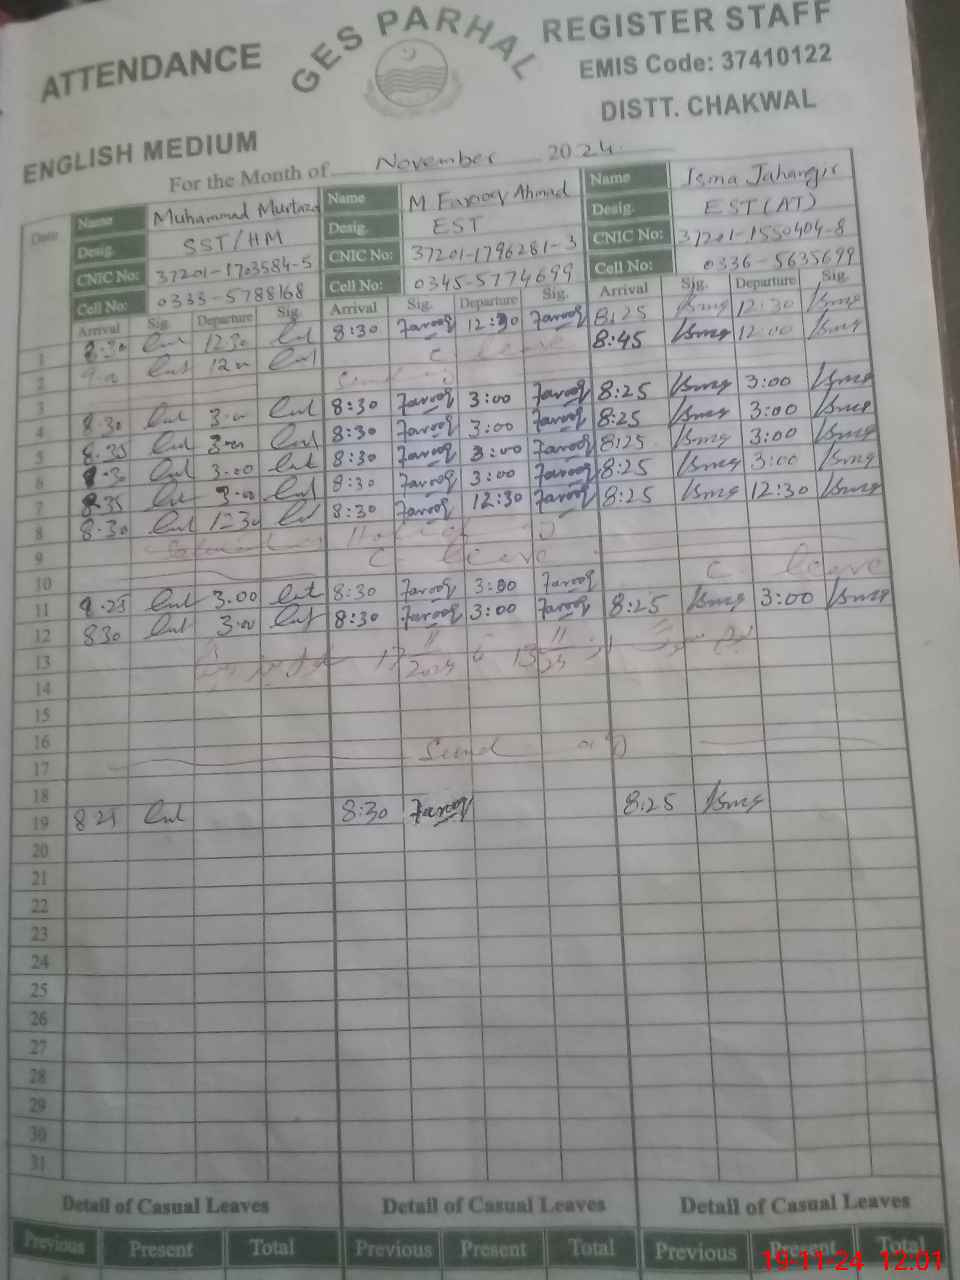 ATTENDANCE
GES PARHAL
REGISTER STAFF
EMIS Code: 37410122
DISTT. CHAKWAL
ENGLISH MEDIUM
For the Month of November 2024
Date Name Muhammad Murtaza Name M Farooq Ahmad Name Isma Jahangir
Desig. SST/HM Desig. EST Desig. EST (AT)
CNIC No: 37201-1703584-5 CNIC No: 37201-1796281-3 CNIC No: 37201-1550404-8
Cell No: 0333-5788168 Cell No: 0345-5774699 Cell No: 0336-5635699
Arrival Sig. Departure Sig. Arrival Sig. Departure Sig. Arrival Sig. Departure Sig.
1 8:30 1230 8:30 Farooq 12:30 Farooq 8:25 Isma 12:30 Isma
2 C leave 8:45 Isma 12:00 Isma
3
4 8.30 3.00 8:30 Farooq 3:00 Farooq 8:25 Isma 3:00 Isma
5 8.35 3.00 8:30 Farooq 3:00 Farooq 8:25 Isma 3:00 Isma
6 8.30 3.00 8:30 Farooq 3:00 Farooq 8:25 Isma 3:00 Isma
7 8.35 3.00 8:30 Farooq 3:00 Farooq 8:25 Isma 3:00 Isma
8 8.30 1230 8:30 Farooq 12:30 Farooq 8:25 Isma 12:30 Isma
9
10 C leave C leave
11 8.25 3.00 8:30 Farooq 3:00 Farooq
12 830 3.00 8:30 Farooq 3:00 Farooq 8:25 Isma 3:00 Isma
13
14
15
16
17
18
19 8 25 8:30 Farooq 8:25 Isma
20
21
22
23
24
25
26
27
28
29
30
31
Detail of Casual Leaves Detail of Casual Leaves Detail of Casual Leaves
Previous Present Total Previous Present Total Previous Present Total
19-11-24 12:01